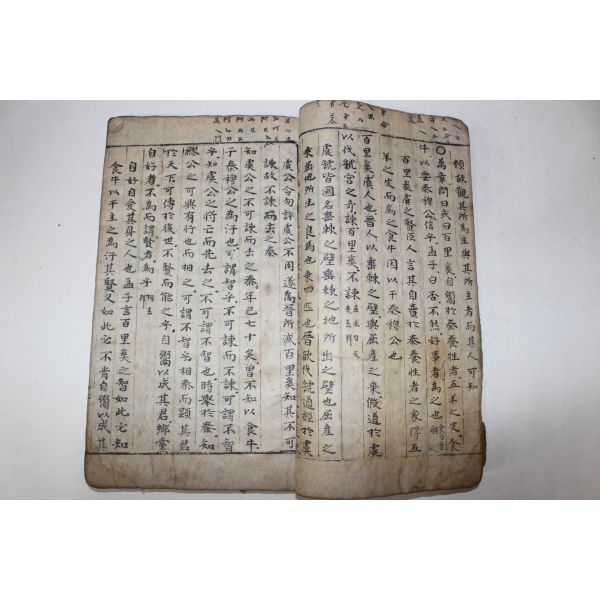 類故觀其所爲主與其所主者而其人可知
○萬章問曰或曰百里奚自鬻於秦養牲者五羊之皮食
牛以要秦穆公信乎孟子曰否不然好事者爲之也
百里奚虞之賢臣人言其自賣於秦養牲者之家得五
羊之皮而爲之食牛因以干秦穆公也
百里奚虞人也晉人以垂棘之璧與屈産之乘假道於虞
以伐虢宮之奇諫百里奚不諫
虞虢皆國名垂棘之璧垂棘之地所出之璧也屈産之
乘屈地所生之良馬也乘四匹也晉欲伐虢道經於虞
虞公令勿許虞公不用遂爲晉所滅百里奚知其不可
諫故不諫而去之秦
知虞公之不可諫而去之秦年已七十矣曾不知以食牛
干秦穆公之爲汙也可謂智乎不可諫而不諫可謂不智
乎知虞公之將亡而先去之不可謂不智也時舉於秦知
繆公之可與有行也而相之可謂不智乎相秦而顯其君
於天下可傳於後世不賢而能之乎自鬻以成其君鄉黨
自好者不爲而謂賢者爲乎
自好自愛其身之人也孟子言百里奚之智如此必知
食牛以干主之爲汙其賢又如此必不肯自鬻以成其